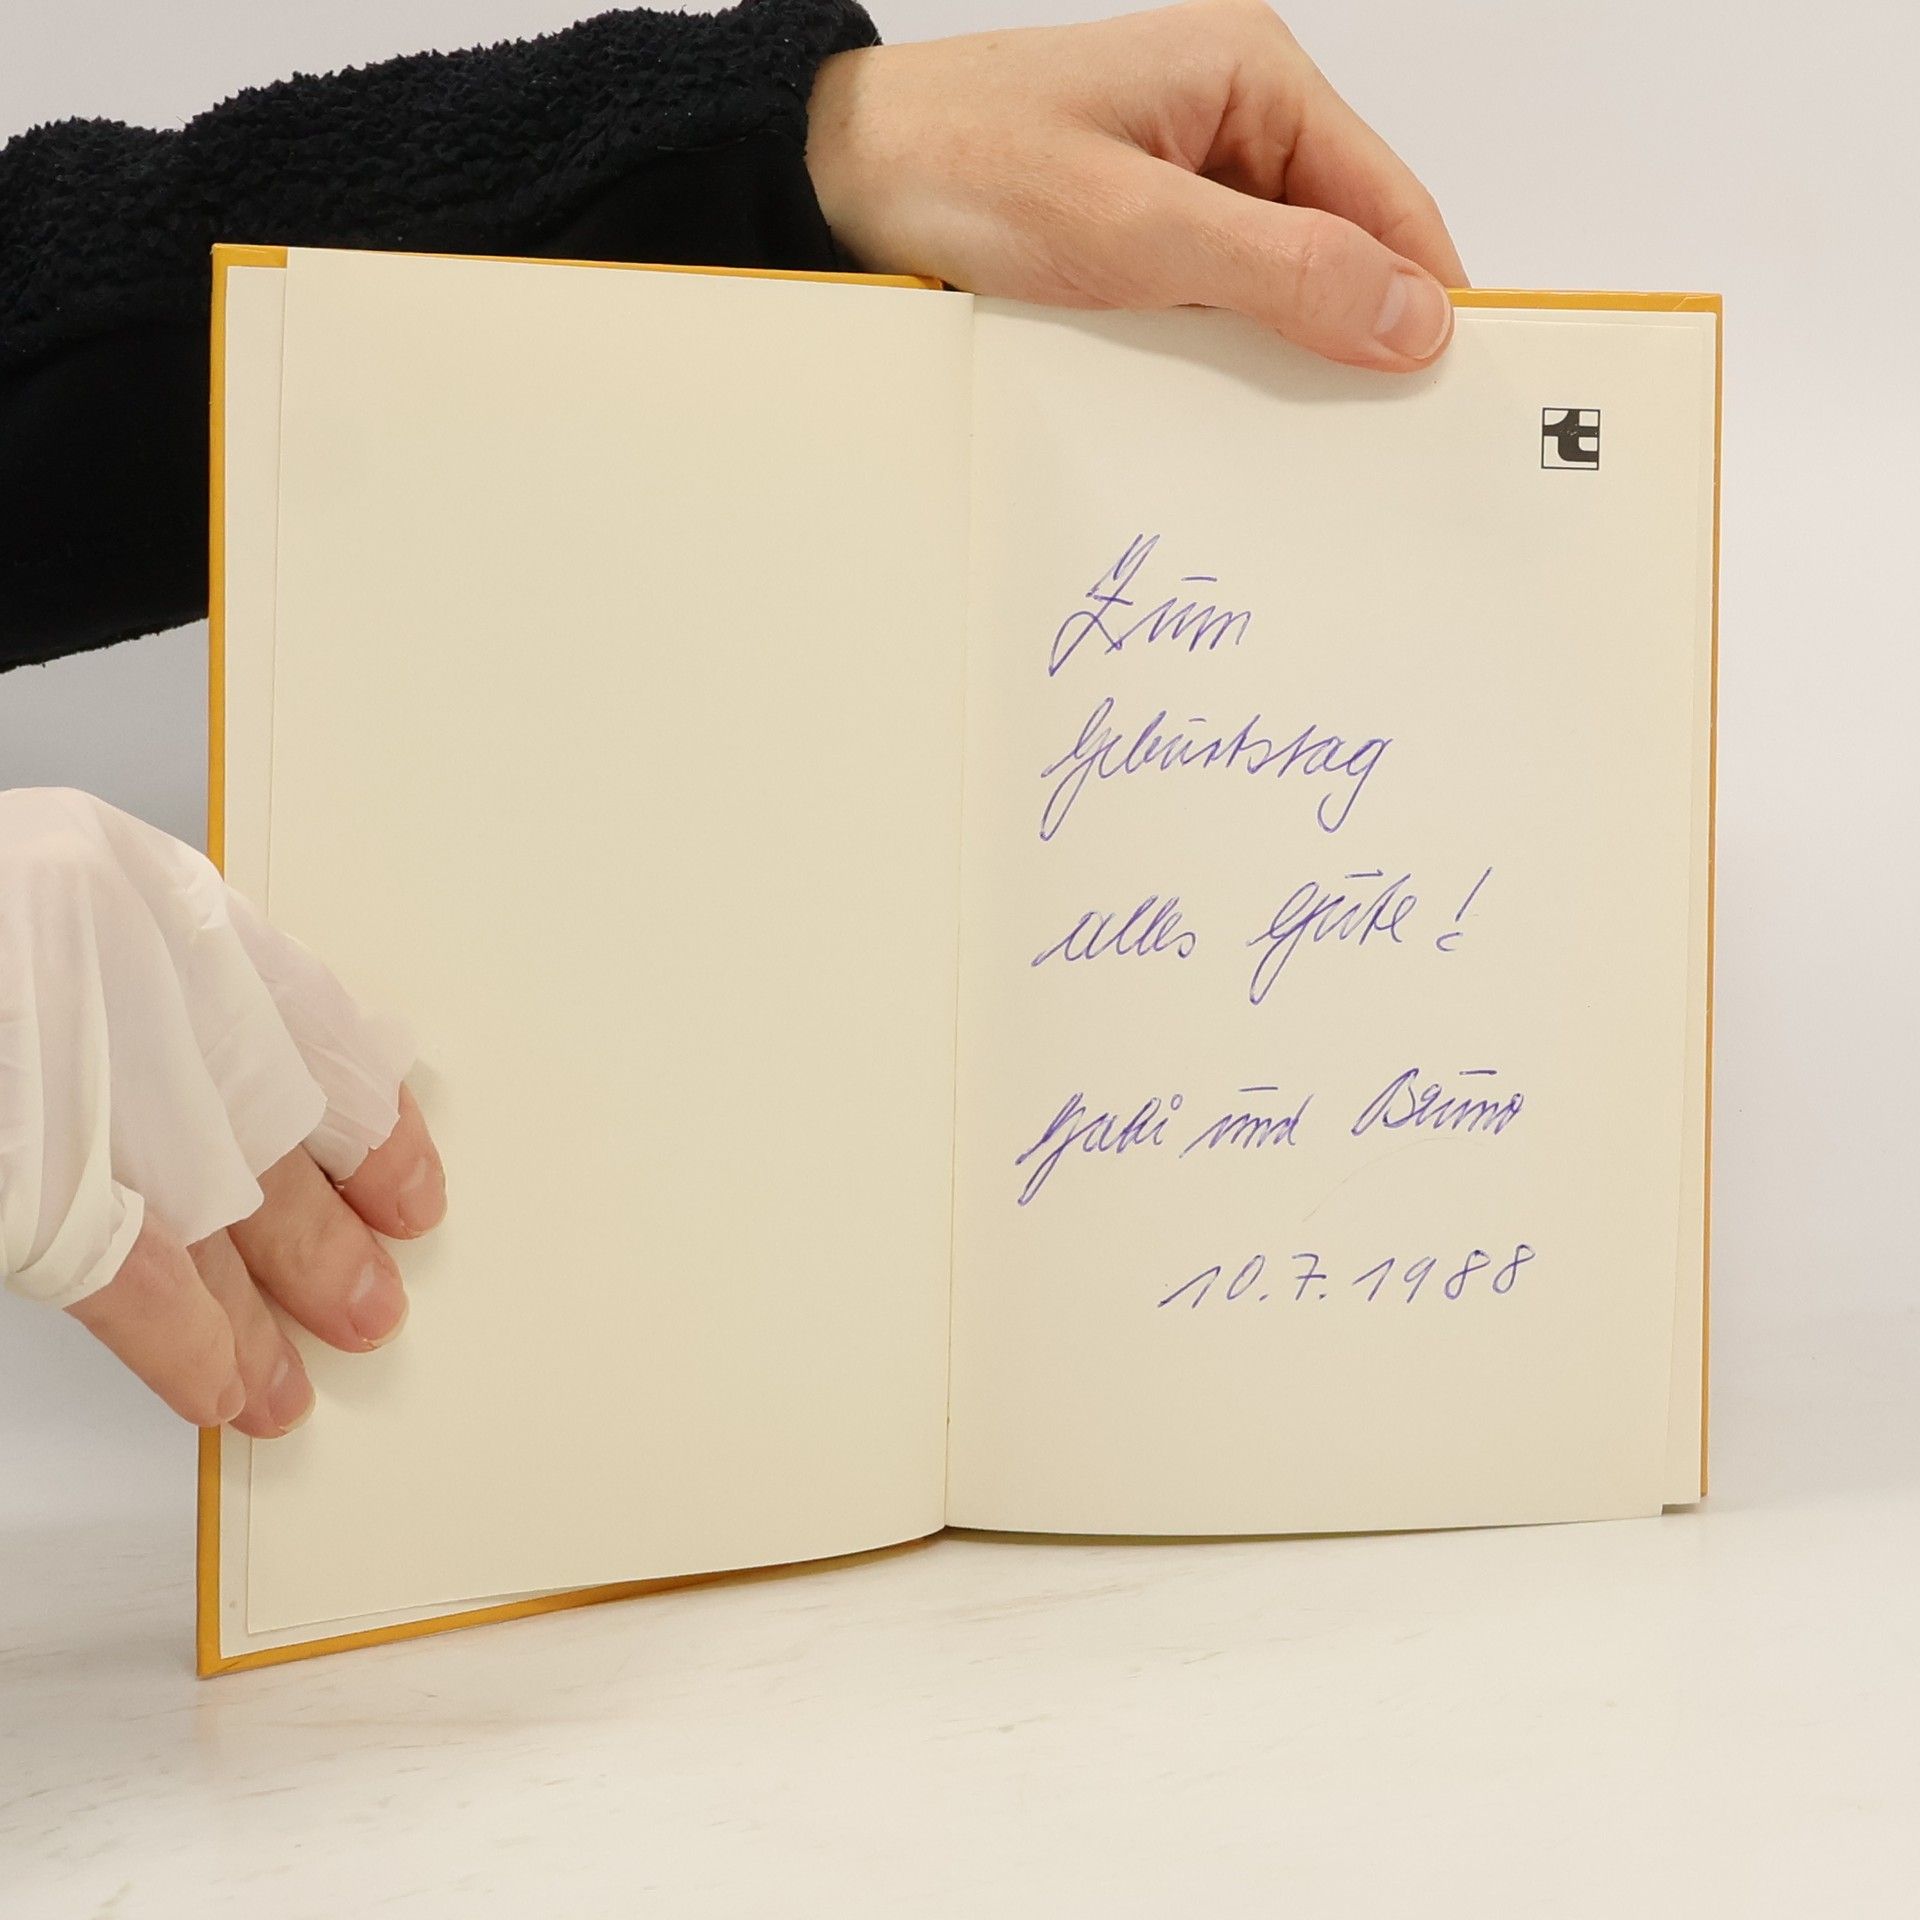 t
Zum
Geburtstag
alles Gute!
Gabi und Bruno
10.7.1988